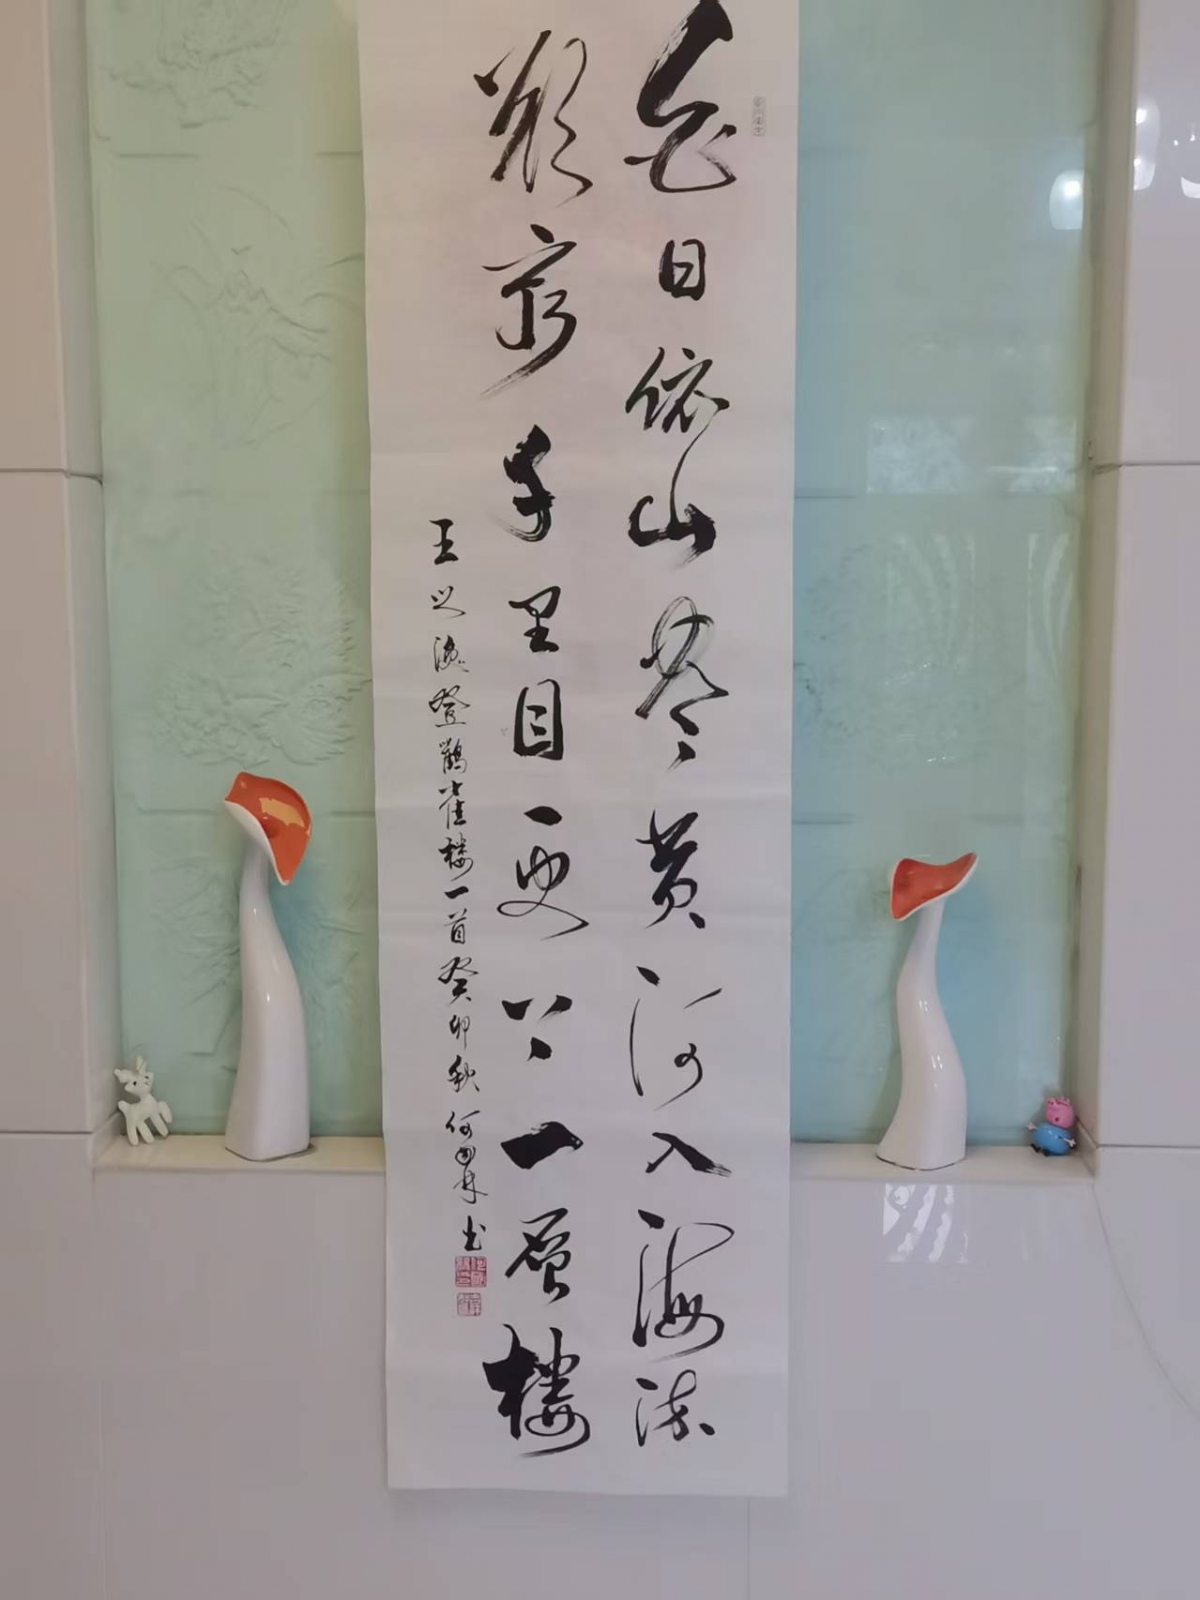 白日依山尽黄河入海流
欲穷千里目更上一层楼
王之涣登鹳雀楼一首癸卯秋何国林书